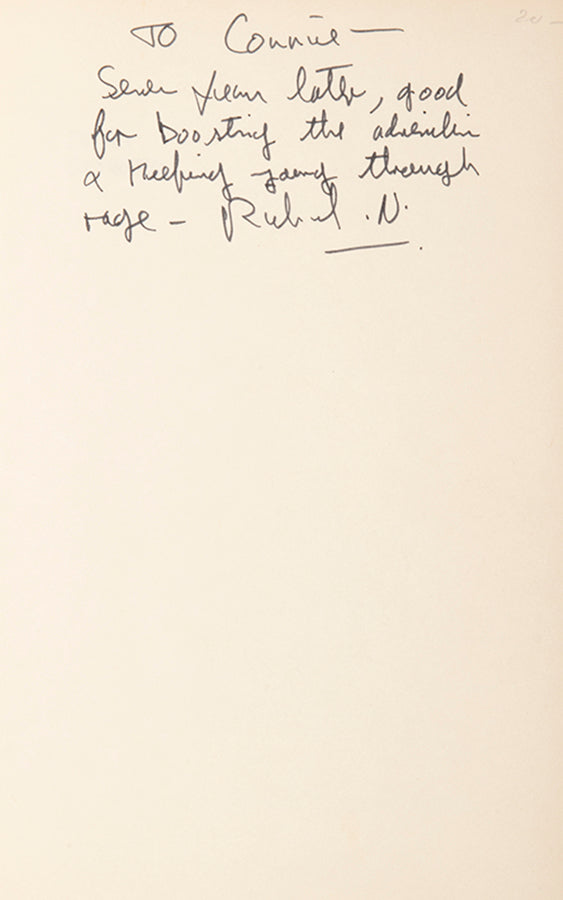 20 –
TO Connie —
Seven years later, good
for boosting the adrenlin
& keeping young through
rage – Richard . N.